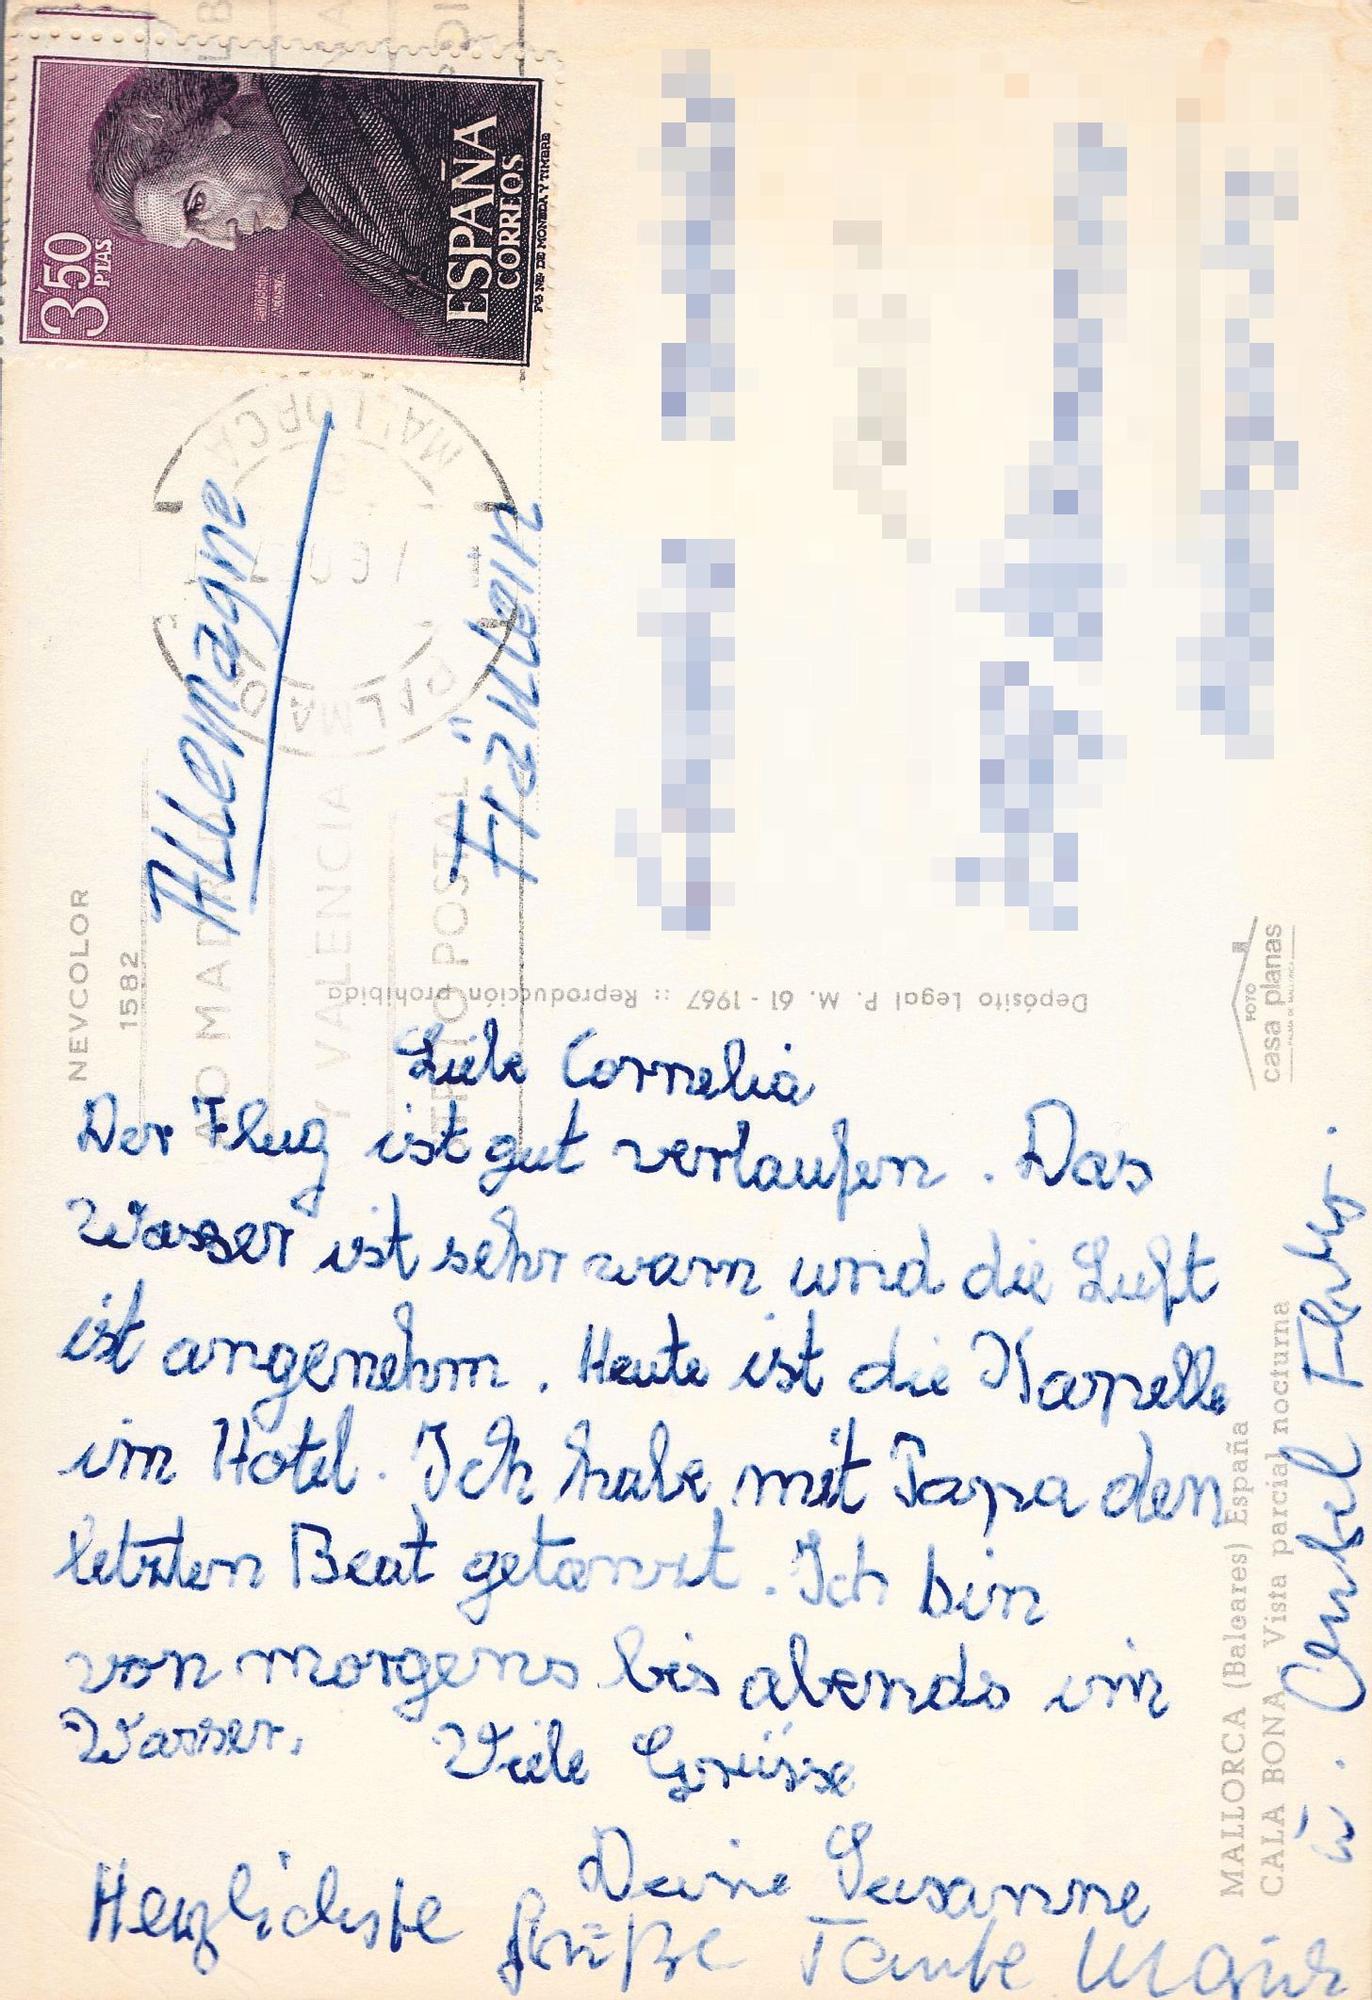 3'50
PTAS
ESPAÑA
CORREOS
MALLORCA
PALMA
Y VALENCIA
POSTAL
Allemagne
Fräulein
NEVCOLOR
1582
Depósito Legal P. M. 61 - 1967 :: Reproducción prohibida
FOTO
casa planas
PALMA DE MALLORCA
Liebe Cornelia
Der Flug ist gut verlaufen. Das
Wasser ist sehr warm und die Luft
ist angenehm. Heute ist die Kapelle
im Hotel. Ich habe mit Papa den
letzten Beat getanzt. Ich bin
von morgens bis abends im
Wasser. Viele Grüsse
Deine Susanne
Herzlichste Grüße Tante
u. Onkel
MALLORCA (Baleares) España
CALA BONA Vista parcial nocturna